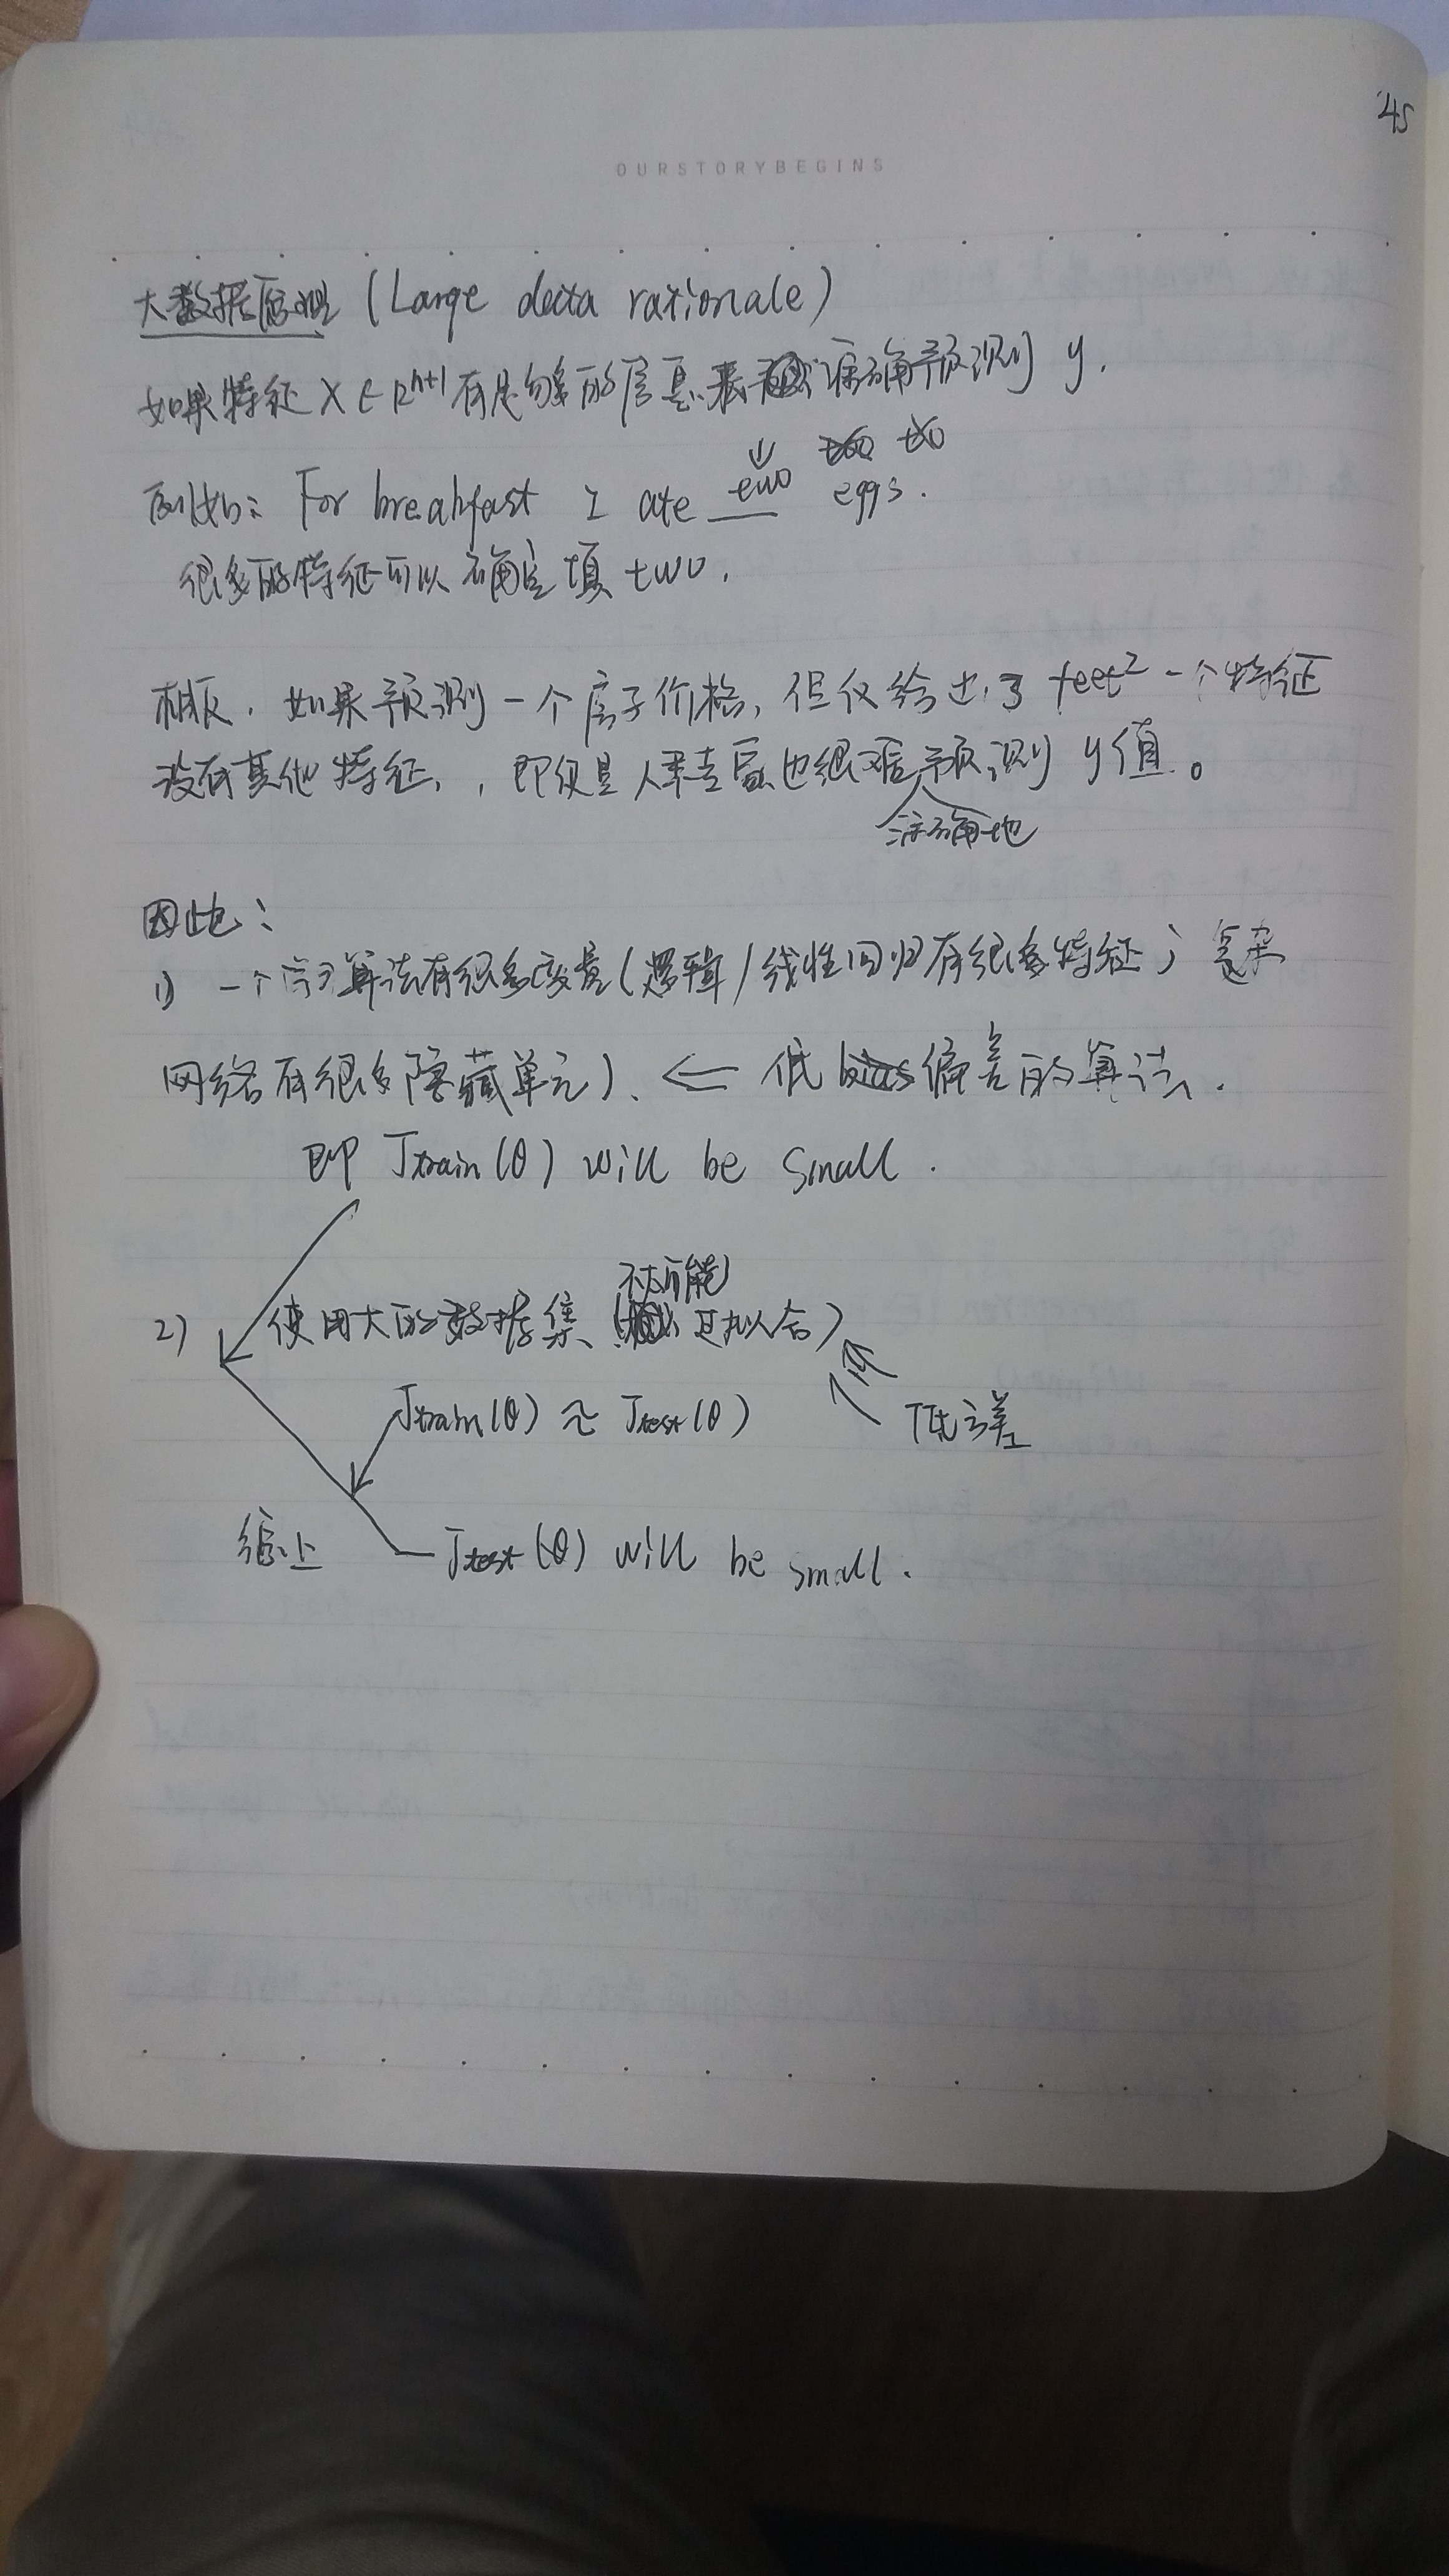 45
OURSTORYBEGINS
大数据原理 (Large data rationale)
如果特征 X ∈ R^{n+1} 有足够多的信息来准确预测 y.
too to
例如: For breakfast I ate two eggs.
很多的特征可以确定填 two.
相反, 如果预测一个房子价格, 但仅给出了 feet² 一个特征
没有其他特征, , 即使是人类专家也很难预测 y值。
准确地
因此:
1) 一个学习算法有很多变量(逻辑/线性回归有很多特征; 复杂
网络有很多隐藏单元). ⇐ 低 bias 偏差的算法.
即 Jtrain(θ) will be small.
不太可能
2) 使用大的数据集 (过拟合)
Jtrain(θ) ≈ Jtest(θ) 低方差
综上 Jtest(θ) will be small.